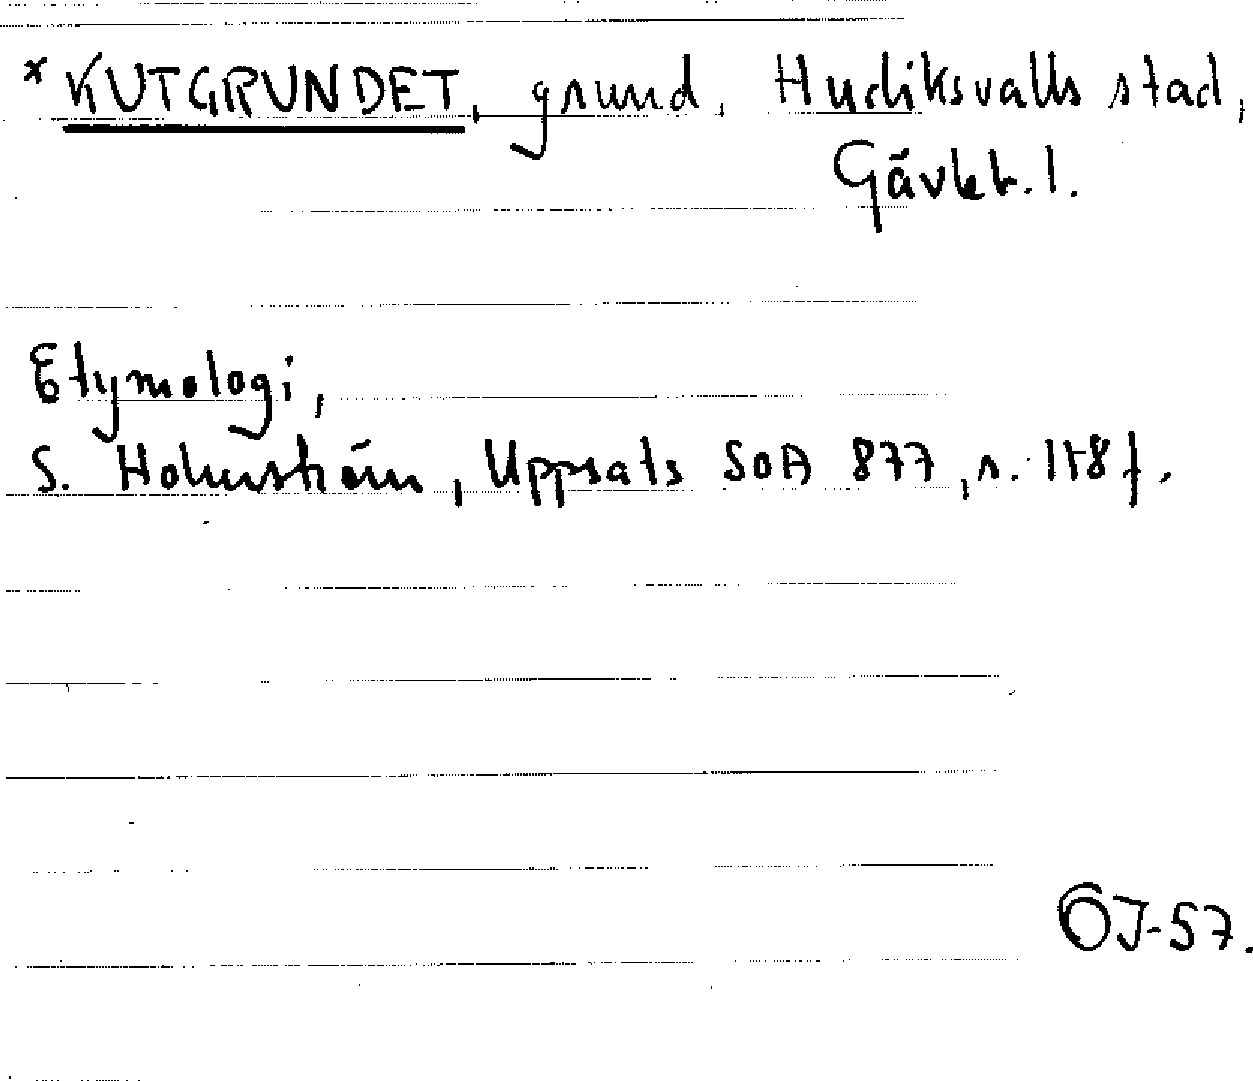 * KUTGRUNDET, grund, Hudiksvalls stad,
Gävleb. l.
Etymologi,
S. Holmström, Uppsats SOA 877, s. 118 f.
OJ-57.